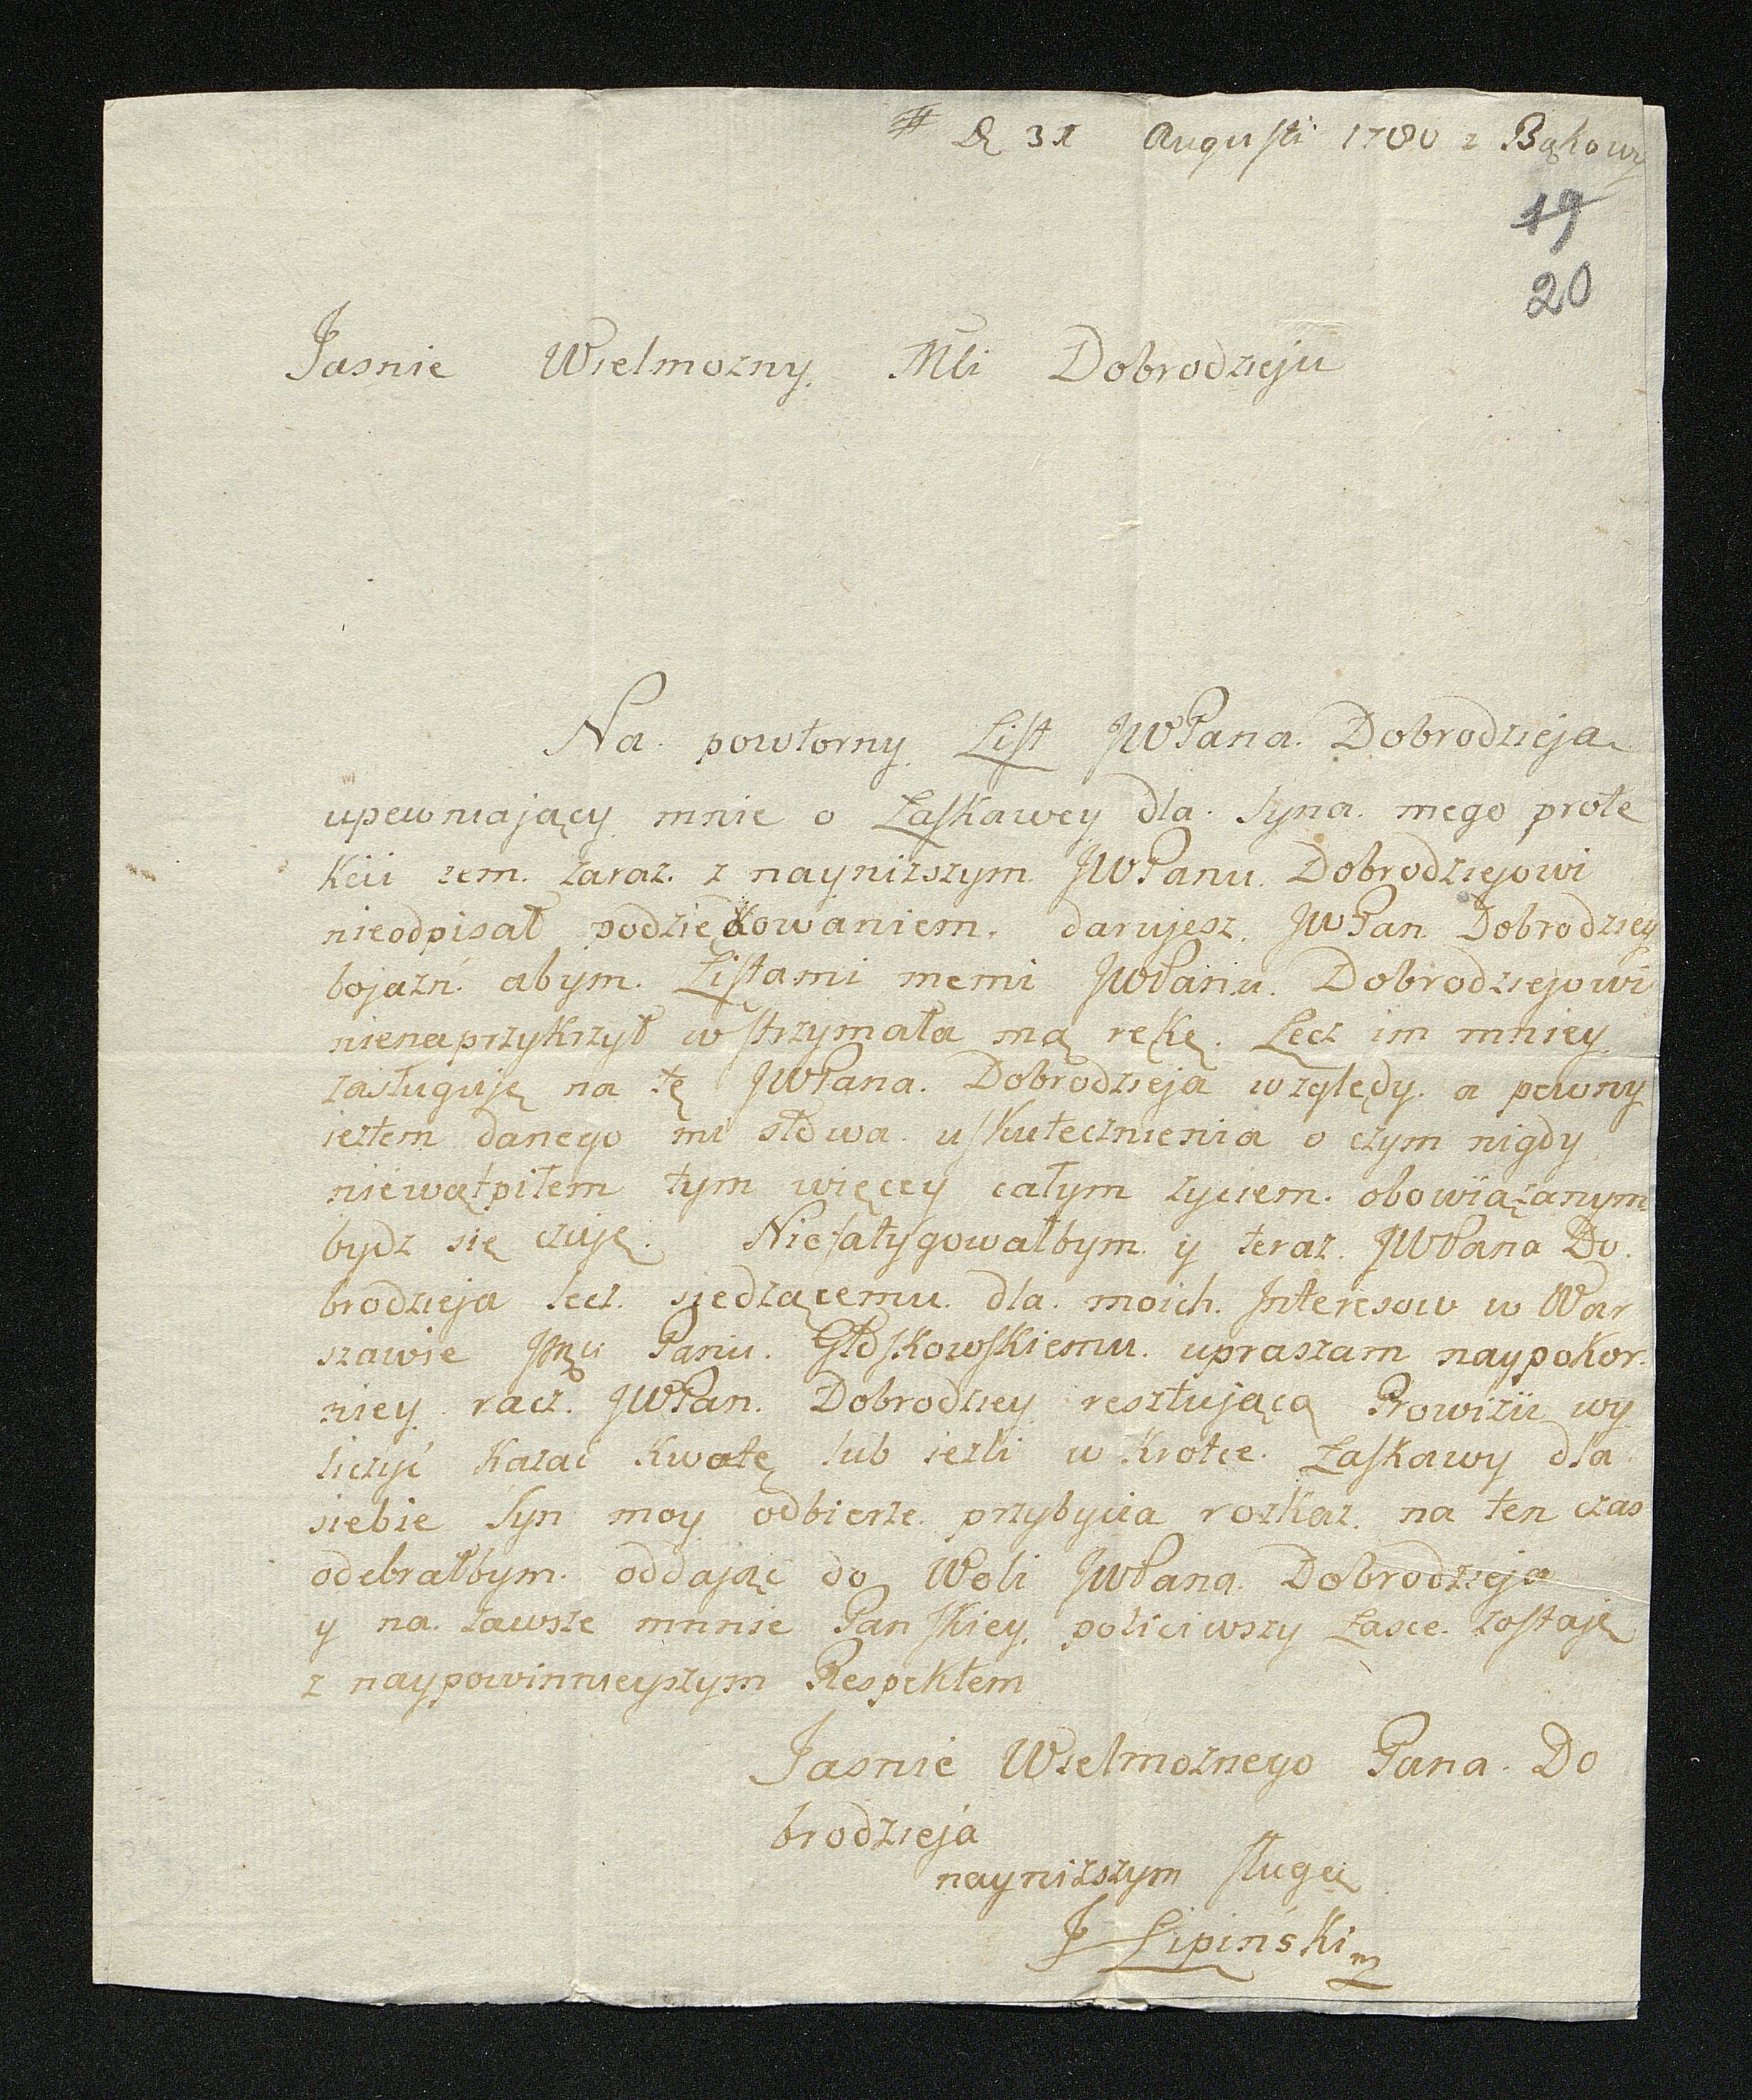 # D 31 Augusti 1780 z Bąkowy
19
20
Jasnie Wielmozny Mci Dobrodzieju
Na powtorny List JWPana Dobrodzieja
upewniaiący mnie o Łaskawey dla Syna mego prote
kcii zem zaraz z naynizszym JWPanu Dobrodziejowi
nieodpisał podziękowaniem. darujesz JWPan Dobrodziey
bojazń abym Listami memi JWPanu Dobrodziejowi
nienaprzykrzył wstrzymała mą rękę. Lecz im mniey
zasługuję na tę JWPana Dobrodzieja względy a pewny
iestem danego mi słowa uskutecznienia o czym nigdy
niewątpiłem tym więcey całym zyciem obowiązanym
bydz się czuję. Niefatygowałbym y teraz JWPana Do
brodzieja lecz siedzącemu dla moich Interesow w War
szawie Panu Głoskowskiemu upraszam naypokor
niey racz JWPan Dobrodziey resztującą Prowizii wy
liczyć kazać kwotę lub iezli w krotce Łaskawy dla
siebie Syn moy odbierze przybycia rozkaz na ten czas
odebrałbym oddając do Woli JWPana Dobrodzieja
y na zawsze mnnie Panskiey policiwszy Łasce zostaję
z naypowinnieyszym Respektem
Jasnie Wielmoznego Pana Do
brodzieja
naynizszym sługą
J Lipiński m